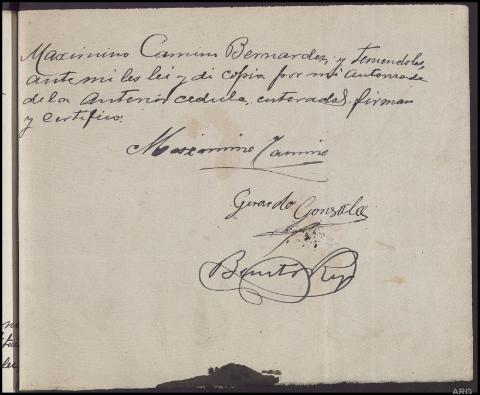 Maximino Camino Bernardez, y teniendoles
ante mi les lei y di copia por mi autorizada
de la anterior cedula, enterados, firman
y certifico:
Maximino Camino
Gerardo Gonzalez
Benito Rey
ARG